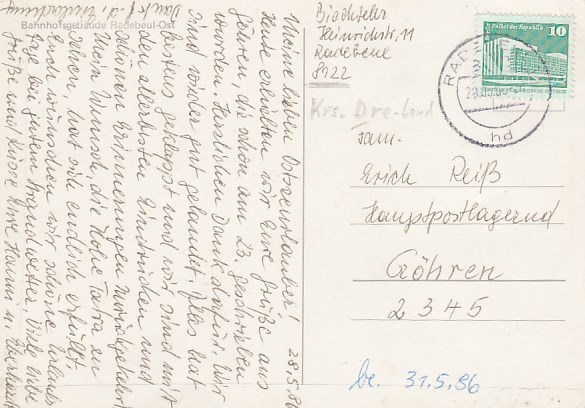 Bahnhofsgebäude Radebeul-Ost
28.5.86
Meine lieben Ostseeurlauber!
Heute erhielten wir Eure Grüße aus
Göhren, die schon am 23. geschrieben
wurden. Herzlichen Dank dafür. Wir
sind wieder gut gelandet. Alles hat
bestens geklappt und wir sind mit
den allerbesten Eindrücken und
schönen Erinnerungen zurückgekehrt.
Mein Wunsch, die Hohe Tatra zu
sehen, hat sich endlich erfüllt.
Euch wünschen wir schöne Urlaubs-
tage bei gutem Strandwetter. Viele liebe
Grüße und Küsse Eure Hanni u. Eberhard
Dank f. d.
Heinrichstr. 11
Radebeul
8122
Krs. Dre-Land
10
Palast der Republik
RADEBEUL
hd
Fam.
Erich Reiß
Hauptpostlagernd
Göhren
2345
be. 31.5.86